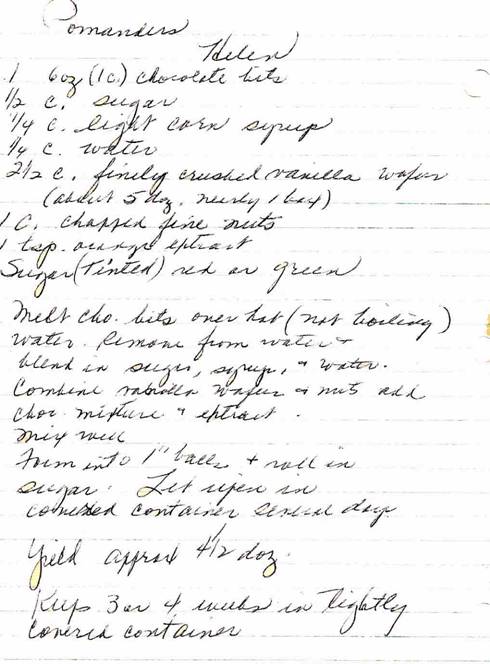 Pomanders
Helen
1 6oz (1c.) chocolate bits
1/2 c. sugar
1/4 c. light corn syrup
1/4 c. water
2 1/2 c. finely crushed vanilla wafers
(about 5 doz. nearly 1 box)
1 C. chopped fine nuts
1 tsp. orange extract
Sugar (Tinted) red or green
Melt cho. bits over hot (not boiling)
water. Remove from water +
blend in sugar, syrup, + water.
Combine vanilla wafer + nuts add
choc. mixture + extract.
Mix well
Form into 1" balls + roll in
sugar. Let ripen in
covered container several days.
Yield approx 4 1/2 doz.
Keeps 3 or 4 weeks in tightly
covered container